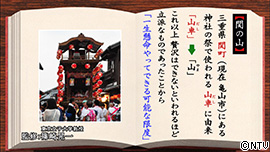 【関の山】
三重県 関町(現在 亀山市)にある
神社の祭で使われる 山車に由来
「山車」➡「山」
これ以上 贅沢はできないといわれるほど
立派なものであったことから
「一生懸命やってできる可能な限度」
©NTU